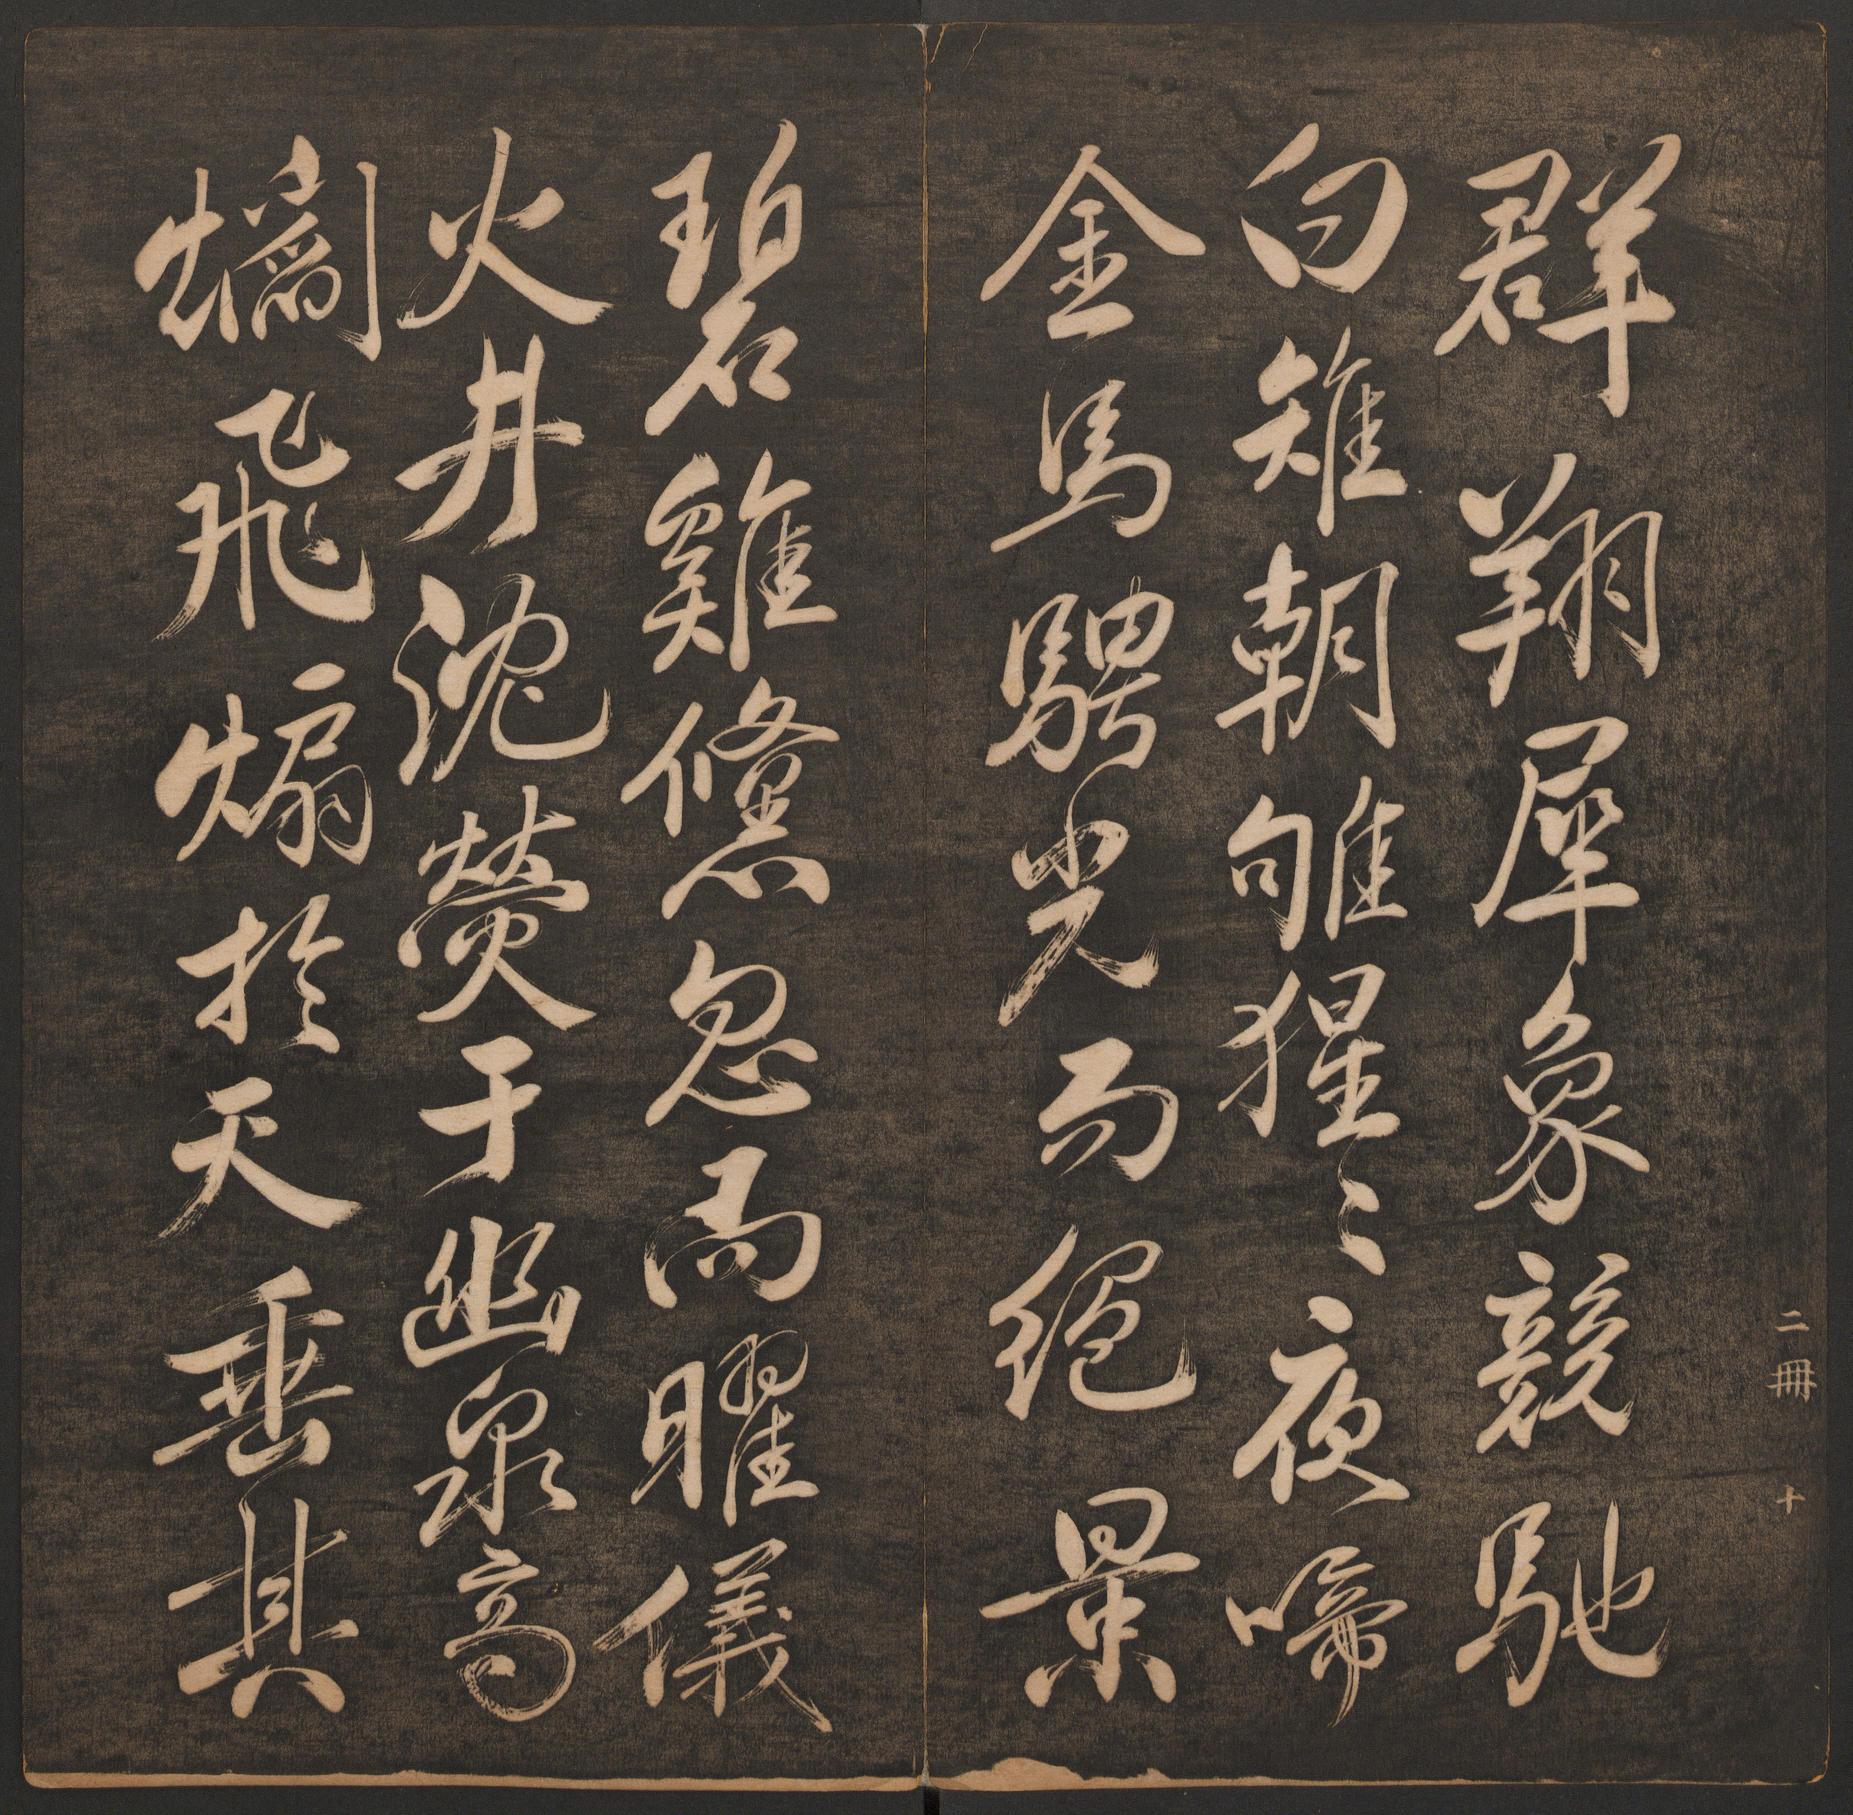 群翔犀象競馳
白雉朝雊猩〻夜啼
金馬騁光而絕景
碧雞儵忽而曜儀
火井沈熒于幽泉高
爓飛煽於天垂其
二冊 十